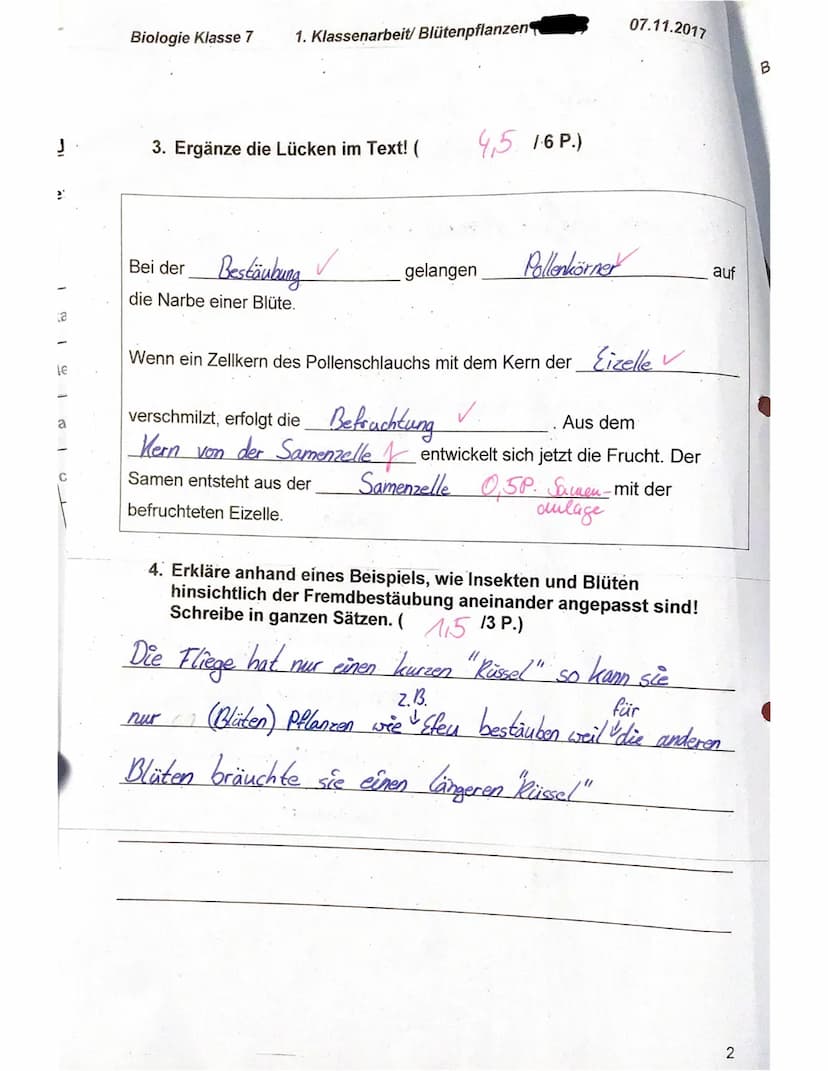 Biologie Klasse 7 1. Klassenarbeit/ Blütenpflanzen 07.11.2017
B
3. Ergänze die Lücken im Text! ( 4,5 /6 P.)
Bei der Bestäubung gelangen Pollenkörner auf
die Narbe einer Blüte.
Wenn ein Zellkern des Pollenschlauchs mit dem Kern der Eizelle
verschmilzt, erfolgt die Befruchtung. Aus dem
Kern von der Samenzelle f entwickelt sich jetzt die Frucht. Der
Samen entsteht aus der Samenzelle 0,5P. Samen- mit der
anlage
befruchteten Eizelle.
4. Erkläre anhand eines Beispiels, wie Insekten und Blüten
hinsichtlich der Fremdbestäubung aneinander angepasst sind!
Schreibe in ganzen Sätzen. ( 1,5 /3 P.)
Die Fliege hat nur einen kurzen "Rüssel" so kann sie
z.B. für
nur (Blüten) Pflanzen wie Efeu bestäuben weil die anderen
Blüten bräuchte sie einen längeren "Rüssel"
2